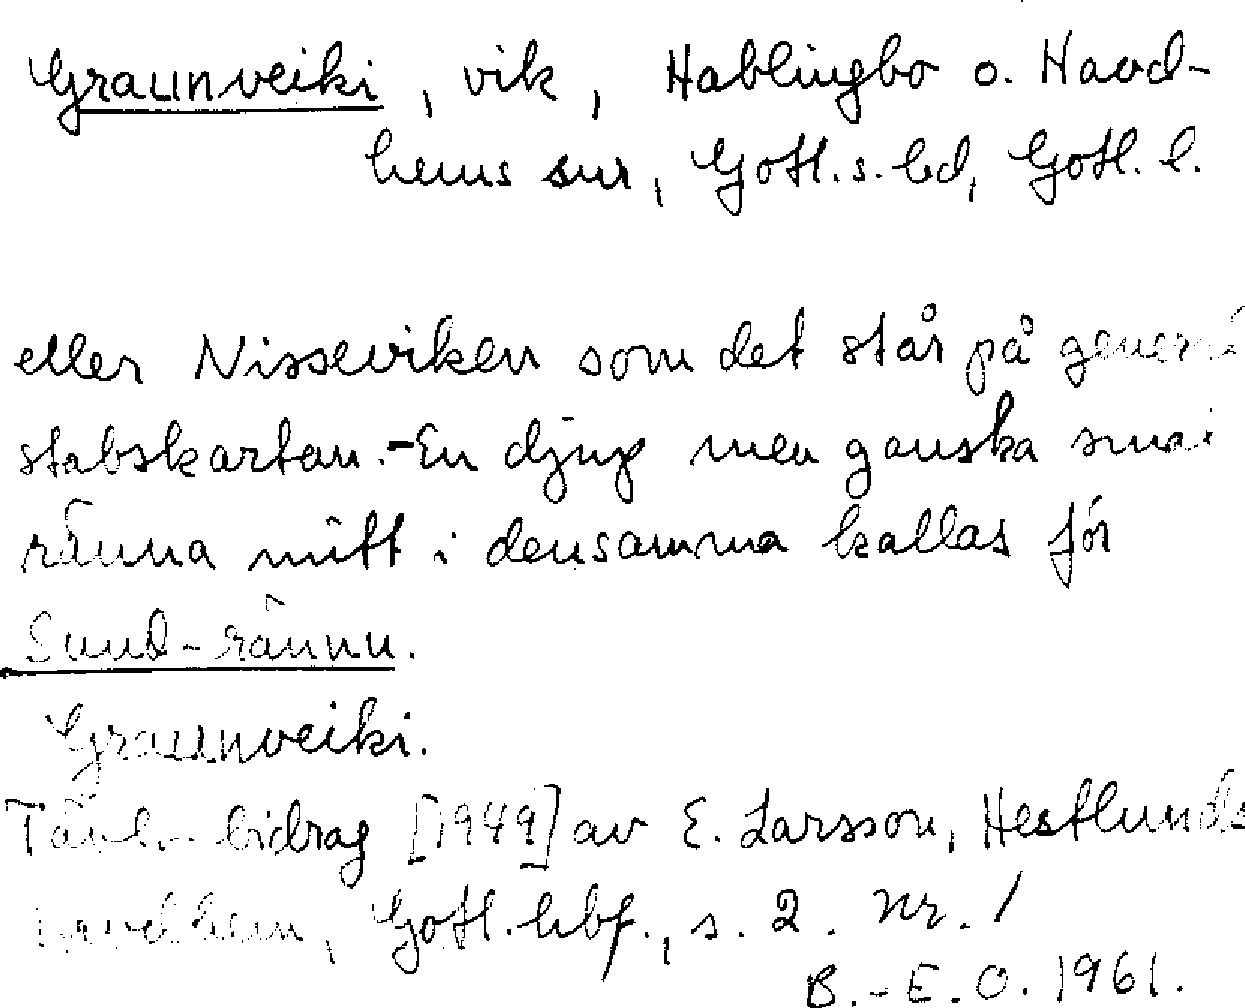 Graunveiki, vik, Hablingbo o. Havd-
hems snr, Gotl. s. hd, Gotl. l.
eller Nisseviken som det står på general
stabskartan. - En djup men ganska smal
ränna mitt i densamma kallas för
Sund-rännu.
Graunveiki.
Tävl.-bidrag [1949] av E. Larsson, Hestlunds
Havdhem, Gotl. hbf., s. 2. nr. 1
B.-E.O. 1961.